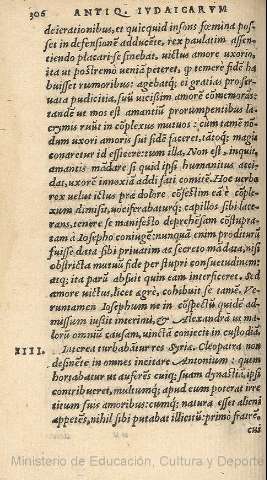 306 ANTIQ. IVDAICARVM
deierationibus, et quicquid insons fœmina pos-
set in defensionē adducēte, rex paulatim assen-
tiendo placari se sinebat, uictus amore uxorio,
ita ut postremo ueniā peteret, φ temerè fidē ha
buisset rumoribus: agebatq́; ei gratias pro ser-
uata pudicitia, suū uicißim amorē cōmemorās:
tandē ut mos est amantiū prorumpentibus la-
crymis ruūt in cōplexus mutuos: cum tamē nō-
dum uxori amoris sui fidē faceret, tātoq́; magis
conaretur id efficere: tum illa, Non est, inquit,
amantis mādare si quid ipsi humanitus acci-
dat, uxorē innoxiā addi fati comitē. Hoc uerbo
rex uelut ictus præ dolore cōfestim eā è cōple-
xum dimisit, uociferabaturq́; capillos sibi lace-
rans, tenere se manifestò deprehēsam cōstupra-
tam à Iosepho coniugē: nunquā enim proditurū
fuisse data sibi priuatim ac secreto mādata, nisi
obstricta mutuū fide per stupri consuetudinem:
atq; ita parū absuit quin eam interficeret. Sed
amore uictus, licet ægrè, cohibuit se tamē. Ve-
runtamen Iosephum ne in cōspectū quidē ad-
missum iußit interimi, & Alexandrā ut ma-
lorū omniū causam, uinctā coniecit in custodiā.
XIII. Interea turbabātur res Syriæ, Cleopatra non
desinēte in omnes incitare Antonium: quem
hortabatur ut auferēs cuiq; suam dynastiā, ipsi
contribueret, multumq́; apud eum poterat irre
titum suis amoribus: cumq́; natura esset alieni
appetēs, nihil sibi putabat illicitū: primo fratrē,
cui
Ministerio de Educación, Cultura y Deporte